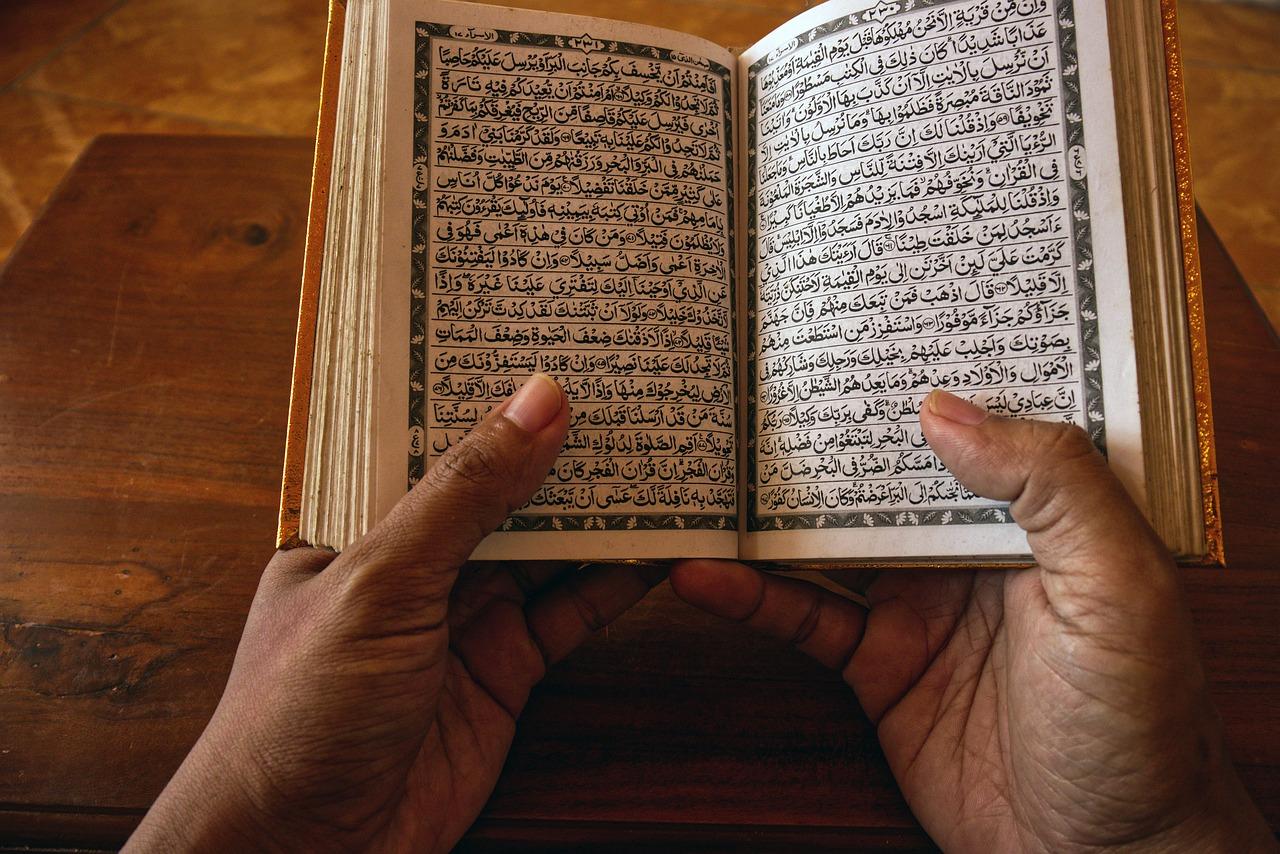 ٢٣٠
الاسرآء ١٧
وَاِنْ مِّنْ قَرْيَةٍ اِلَّا نَحْنُ مُهْلِكُوْهَا قَبْلَ يَوْمِ الْقِيٰمَةِ اَوْ مُعَذِّبُوْهَا
عَذَابًا شَدِيْدًا كَانَ ذٰلِكَ فِى الْكِتٰبِ مَسْطُوْرًا ۝٥٨ وَمَا مَنَعَنَآ
اَنْ نُّرْسِلَ بِالْاٰيٰتِ اِلَّآ اَنْ كَذَّبَ بِهَا الْاَوَّلُوْنَ وَاٰتَيْنَا
ثَمُوْدَ النَّاقَةَ مُبْصِرَةً فَظَلَمُوْا بِهَا وَمَا نُرْسِلُ بِالْاٰيٰتِ اِلَّا
تَخْوِيْفًا ۝٥٩ وَاِذْ قُلْنَا لَكَ اِنَّ رَبَّكَ اَحَاطَ بِالنَّاسِ وَمَا جَعَلْنَا
الرُّءْيَا الَّتِيْٓ اَرَيْنٰكَ اِلَّا فِتْنَةً لِّلنَّاسِ وَالشَّجَرَةَ الْمَلْعُوْنَةَ
فِى الْقُرْاٰنِ وَنُخَوِّفُهُمْ فَمَا يَزِيْدُهُمْ اِلَّا طُغْيَانًا كَبِيْرًا ۝٦٠
وَاِذْ قُلْنَا لِلْمَلٰٓئِكَةِ اسْجُدُوْا لِاٰدَمَ فَسَجَدُوْٓا اِلَّآ اِبْلِيْسَ قَالَ
ءَاَسْجُدُ لِمَنْ خَلَقْتَ طِيْنًا ۝٦١ قَالَ اَرَءَيْتَكَ هٰذَا الَّذِيْ
كَرَّمْتَ عَلَيَّ لَئِنْ اَخَّرْتَنِ اِلٰى يَوْمِ الْقِيٰمَةِ لَاَحْتَنِكَنَّ ذُرِّيَّتَهٗٓ
اِلَّا قَلِيْلًا ۝٦٢ قَالَ اذْهَبْ فَمَنْ تَبِعَكَ مِنْهُمْ فَاِنَّ جَهَنَّمَ
جَزَآؤُكُمْ جَزَآءً مَّوْفُوْرًا ۝٦٣ وَاسْتَفْزِزْ مَنِ اسْتَطَعْتَ مِنْهُمْ
بِصَوْتِكَ وَاَجْلِبْ عَلَيْهِمْ بِخَيْلِكَ وَرَجِلِكَ وَشَارِكْهُمْ فِى
الْاَمْوَالِ وَالْاَوْلَادِ وَعِدْهُمْ وَمَا يَعِدُهُمُ الشَّيْطٰنُ اِلَّا غُرُوْرًا ۝٦٤
اِنَّ عِبَادِيْ لَيْسَ سُلْطٰنٌ وَكَفٰى بِرَبِّكَ وَكِيْلًا ۝٦٥ رَبُّكُمُ
فِى الْبَحْرِ لِتَبْتَغُوْا مِنْ فَضْلِهٖ اِنَّهٗ
وَاِذَا مَسَّكُمُ الضُّرُّ فِى الْبَحْرِ ضَلَّ مَنْ
نَجّٰىكُمْ اِلَى الْبَرِّ اَعْرَضْتُمْ وَكَانَ الْاِنْسَانُ كَفُوْرًا ۝٦٧
سبحٰن الذى ١٥
٢٣١
الاسرآء ١٧
اَفَاَمِنْتُمْ اَنْ يَّخْسِفَ بِكُمْ جَانِبَ الْبَرِّ اَوْ يُرْسِلَ عَلَيْكُمْ حَاصِبًا
ثُمَّ لَا تَجِدُوْا لَكُمْ وَكِيْلًا ۝٦٨ اَمْ اَمِنْتُمْ اَنْ يُّعِيْدَكُمْ فِيْهِ تَارَةً
اُخْرٰى فَيُرْسِلَ عَلَيْكُمْ قَاصِفًا مِّنَ الرِّيْحِ فَيُغْرِقَكُمْ بِمَا كَفَرْتُمْ
ثُمَّ لَا تَجِدُوْا لَكُمْ عَلَيْنَا بِهٖ تَبِيْعًا ۝٦٩ وَلَقَدْ كَرَّمْنَا بَنِيْٓ اٰدَمَ وَ
حَمَلْنٰهُمْ فِى الْبَرِّ وَالْبَحْرِ وَرَزَقْنٰهُمْ مِّنَ الطَّيِّبٰتِ وَفَضَّلْنٰهُمْ
عَلٰى كَثِيْرٍ مِّمَّنْ خَلَقْنَا تَفْضِيْلًا ۝٧٠ يَوْمَ نَدْعُوْا كُلَّ اُنَاسٍ
بِاِمَامِهِمْ فَمَنْ اُوْتِيَ كِتٰبَهٗ بِيَمِيْنِهٖ فَاُولٰٓئِكَ يَقْرَءُوْنَ كِتٰبَهُمْ
وَلَا يُظْلَمُوْنَ فَتِيْلًا ۝٧١ وَمَنْ كَانَ فِيْ هٰذِهٖٓ اَعْمٰى فَهُوَ فِى
الْاٰخِرَةِ اَعْمٰى وَاَضَلُّ سَبِيْلًا ۝٧٢ وَاِنْ كَادُوْا لَيَفْتِنُوْنَكَ
عَنِ الَّذِيْٓ اَوْحَيْنَآ اِلَيْكَ لِتَفْتَرِيَ عَلَيْنَا غَيْرَهٗ وَاِذًا
لَّاتَّخَذُوْكَ خَلِيْلًا ۝٧٣ وَلَوْلَآ اَنْ ثَبَّتْنٰكَ لَقَدْ كِدْتَّ تَرْكَنُ اِلَيْهِمْ
شَيْئًا قَلِيْلًا ۝٧٤ اِذًا لَّاَذَقْنٰكَ ضِعْفَ الْحَيٰوةِ وَضِعْفَ الْمَمَاتِ
ثُمَّ لَا تَجِدُ لَكَ عَلَيْنَا نَصِيْرًا ۝٧٥ وَاِنْ كَادُوْا لَيَسْتَفِزُّوْنَكَ مِنَ
الْاَرْضِ لِيُخْرِجُوْكَ مِنْهَا وَاِذًا لَّا خِلٰفَكَ اِلَّا قَلِيْلًا ۝٧٦
سُنَّةَ مَنْ قَدْ اَرْسَلْنَا قَبْلَكَ مِنْ لِسُنَّتِنَا
تَحْوِيْلًا ۝٧٧ اَقِمِ الصَّلٰوةَ لِدُلُوْكِ
وَقُرْاٰنَ الْفَجْرِ اِنَّ قُرْاٰنَ الْفَجْرِ كَانَ
فَتَهَجَّدْ بِهٖ نَافِلَةً لَّكَ عَسٰٓى اَنْ يَّبْعَثَكَ